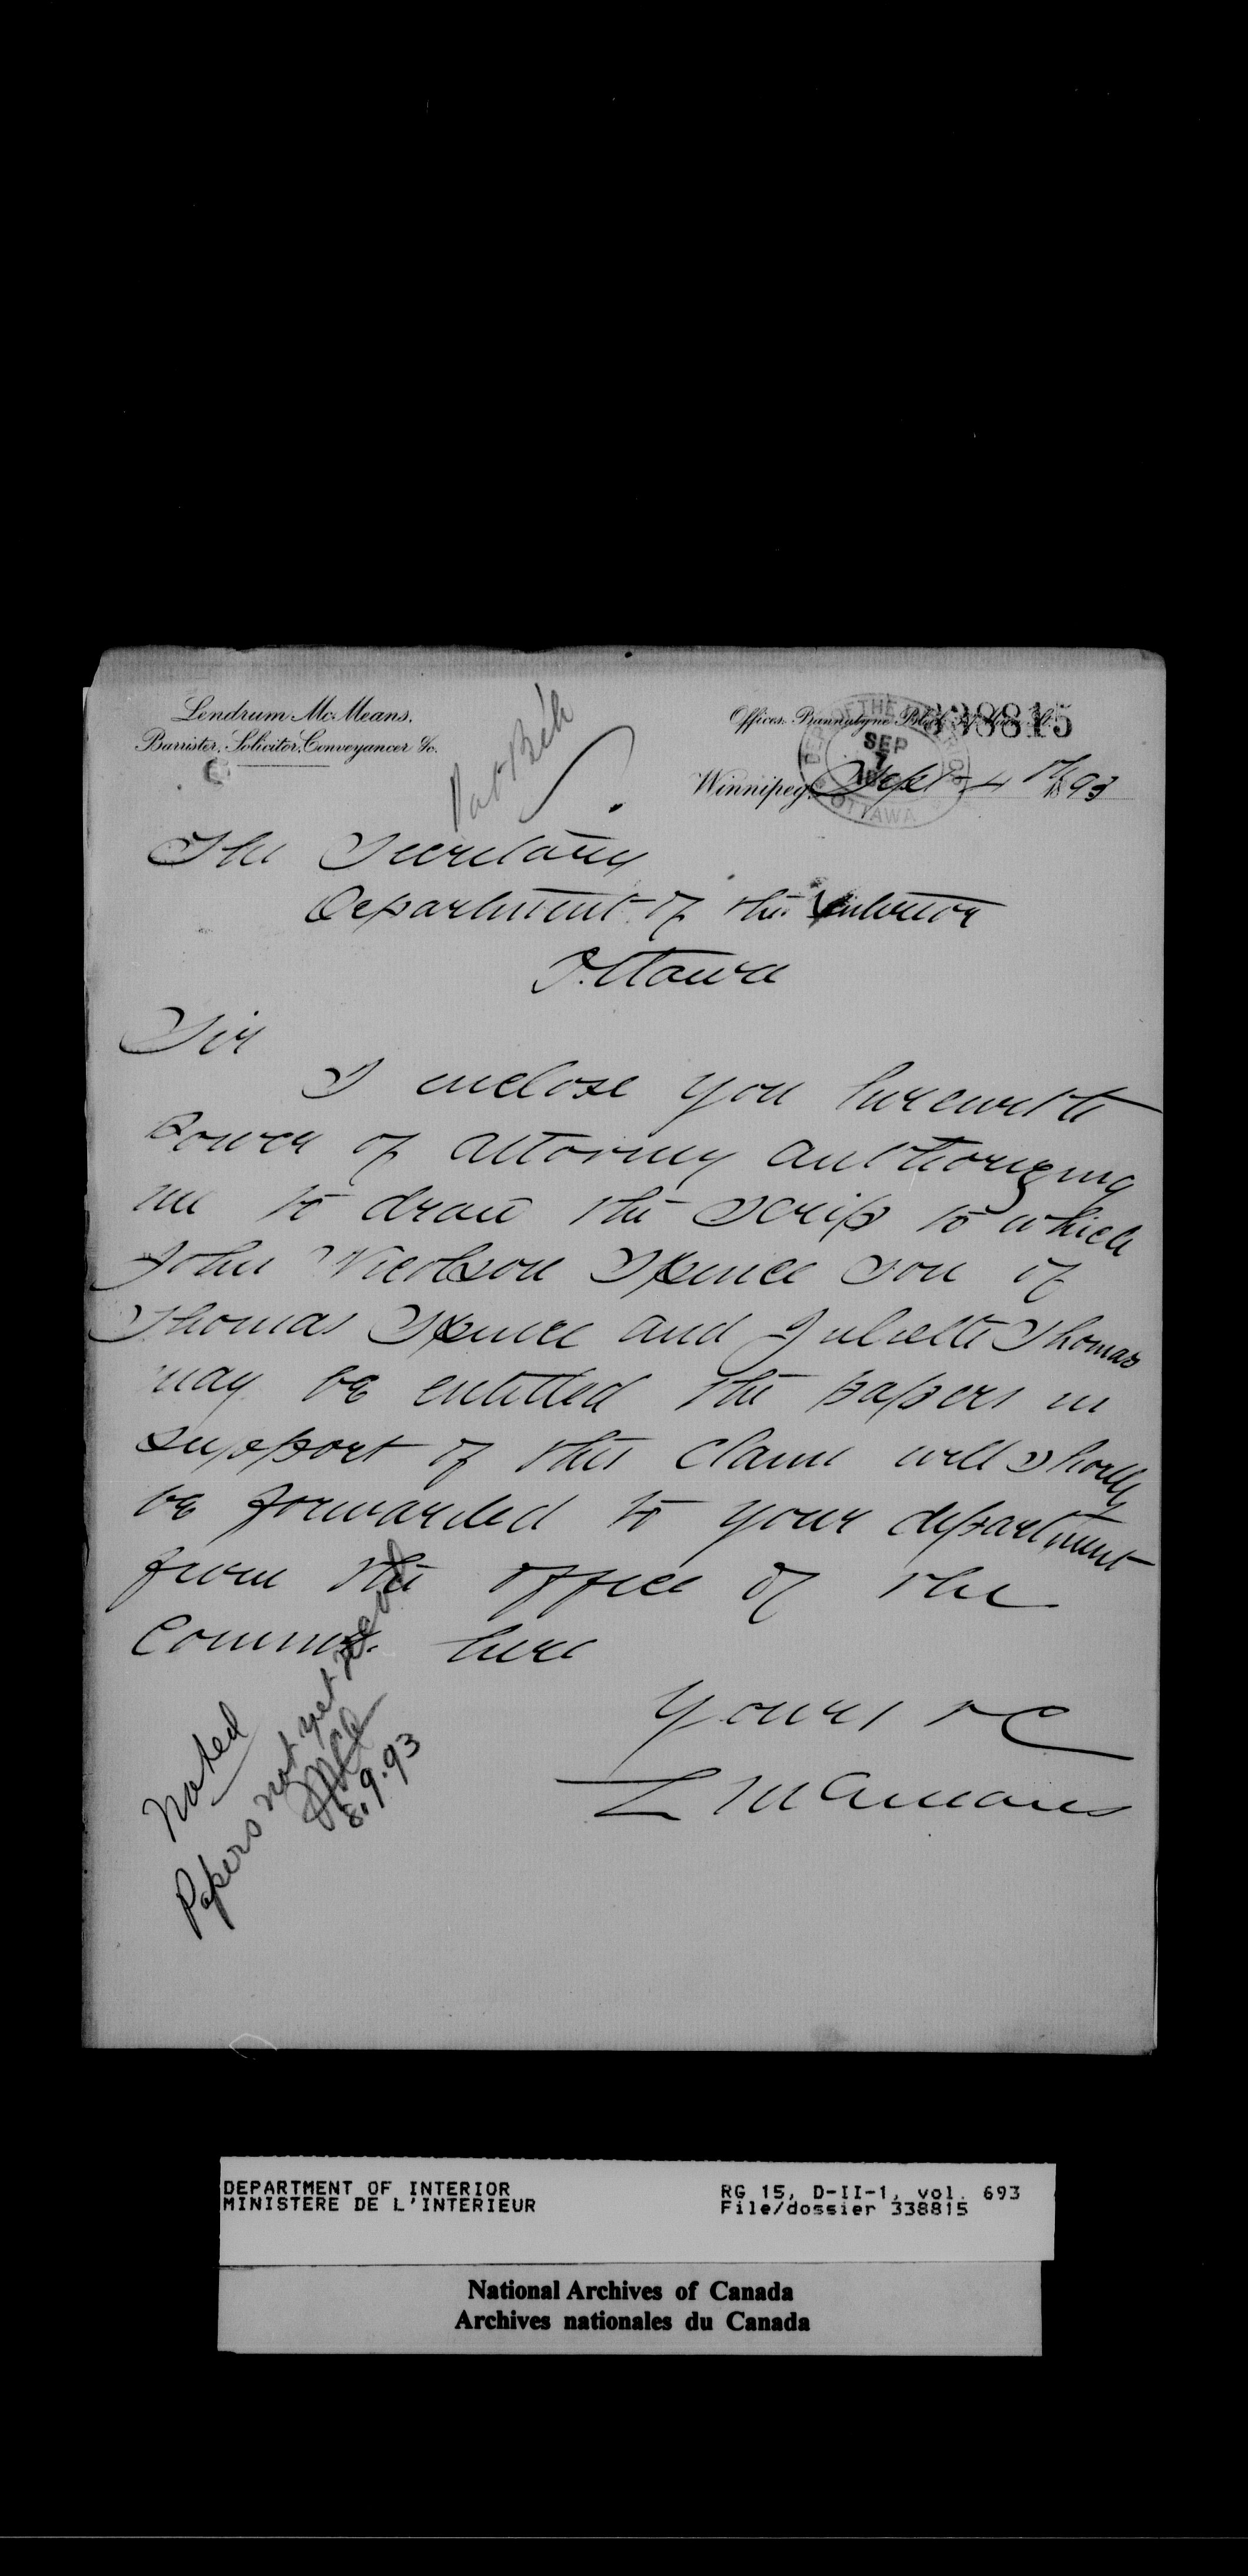 Lendrum Mc.Means.
Barrister, Solicitor, Conveyancer &c.
Offices. Bannatyne Block
338815
DEPT OF THE INTERIOR
SEP
7
OTTAWA
Winnipeg, Sept 4th 1893
The Secretary
Department of the Interior
Ottawa
Sir
I enclose you herewith
Power of attorney authorizing
me to draw the scrip to which
John Nicolson Spence son of
Thomas Spence and Juliette Thomas
may be entitled the papers in
support of this claim will shortly
be forwarded to your department
from the office of the
Commr. here
Yours &c
L McMeans
Noted
Papers not yet recd
8.9.93
DEPARTMENT OF INTERIOR
MINISTERE DE L'INTERIEUR
RG 15, D-II-1, vol. 693
File/dossier 338815
National Archives of Canada
Archives nationales du Canada